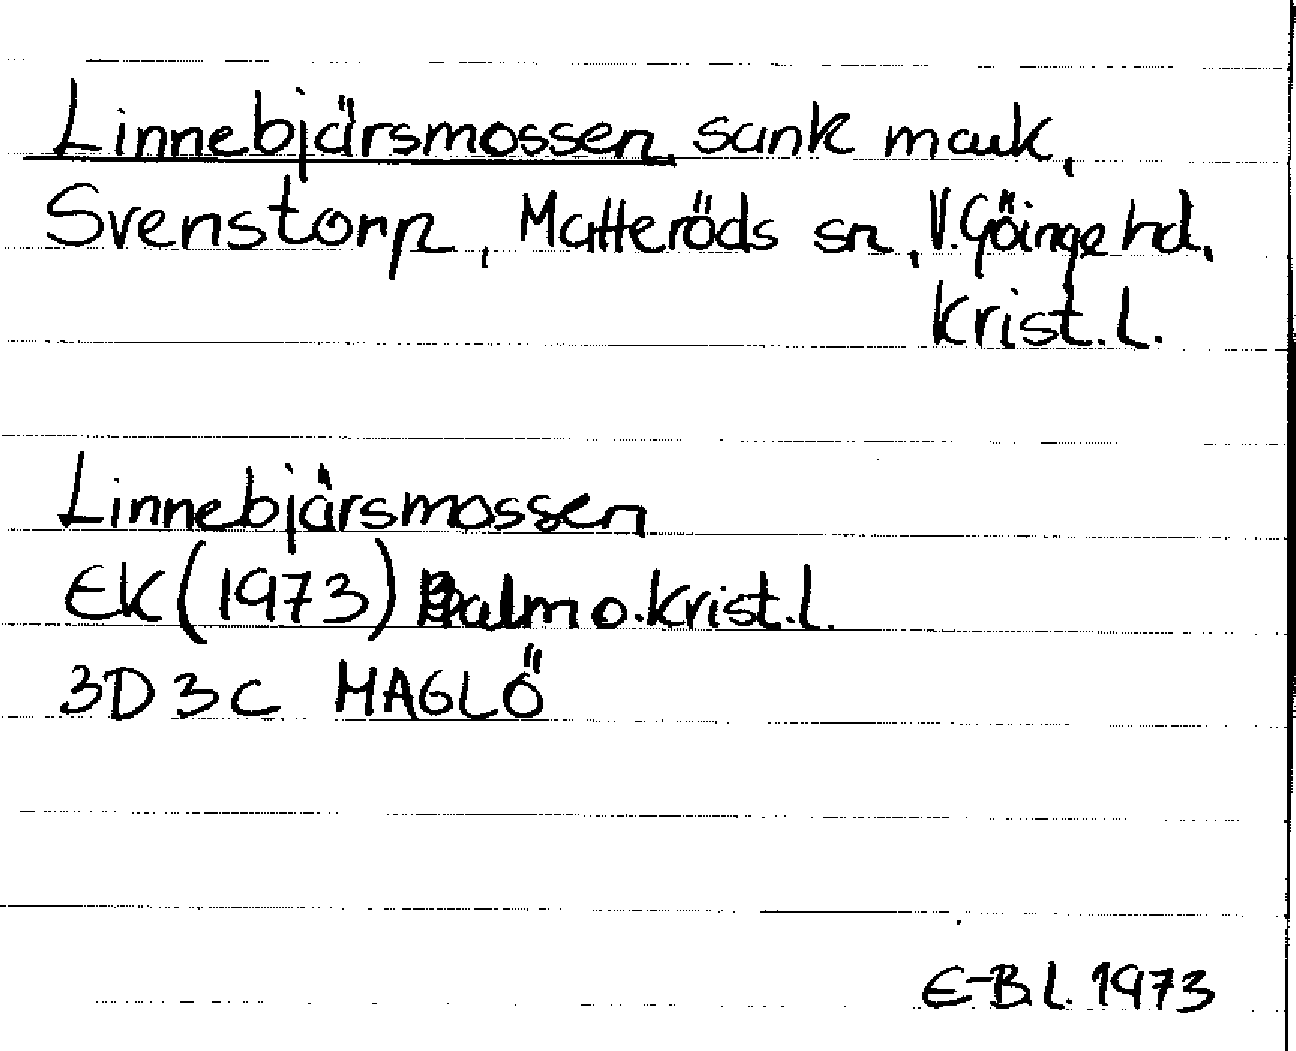 Linnebjärsmossen sank mark,
Svenstorp, Matteröds sn, V. Göinge hd,
Krist. l.
Linnebjärsmossen
EK (1973) o. Krist. l.
3D 3c MAGLÖ
E-B. L. 1973